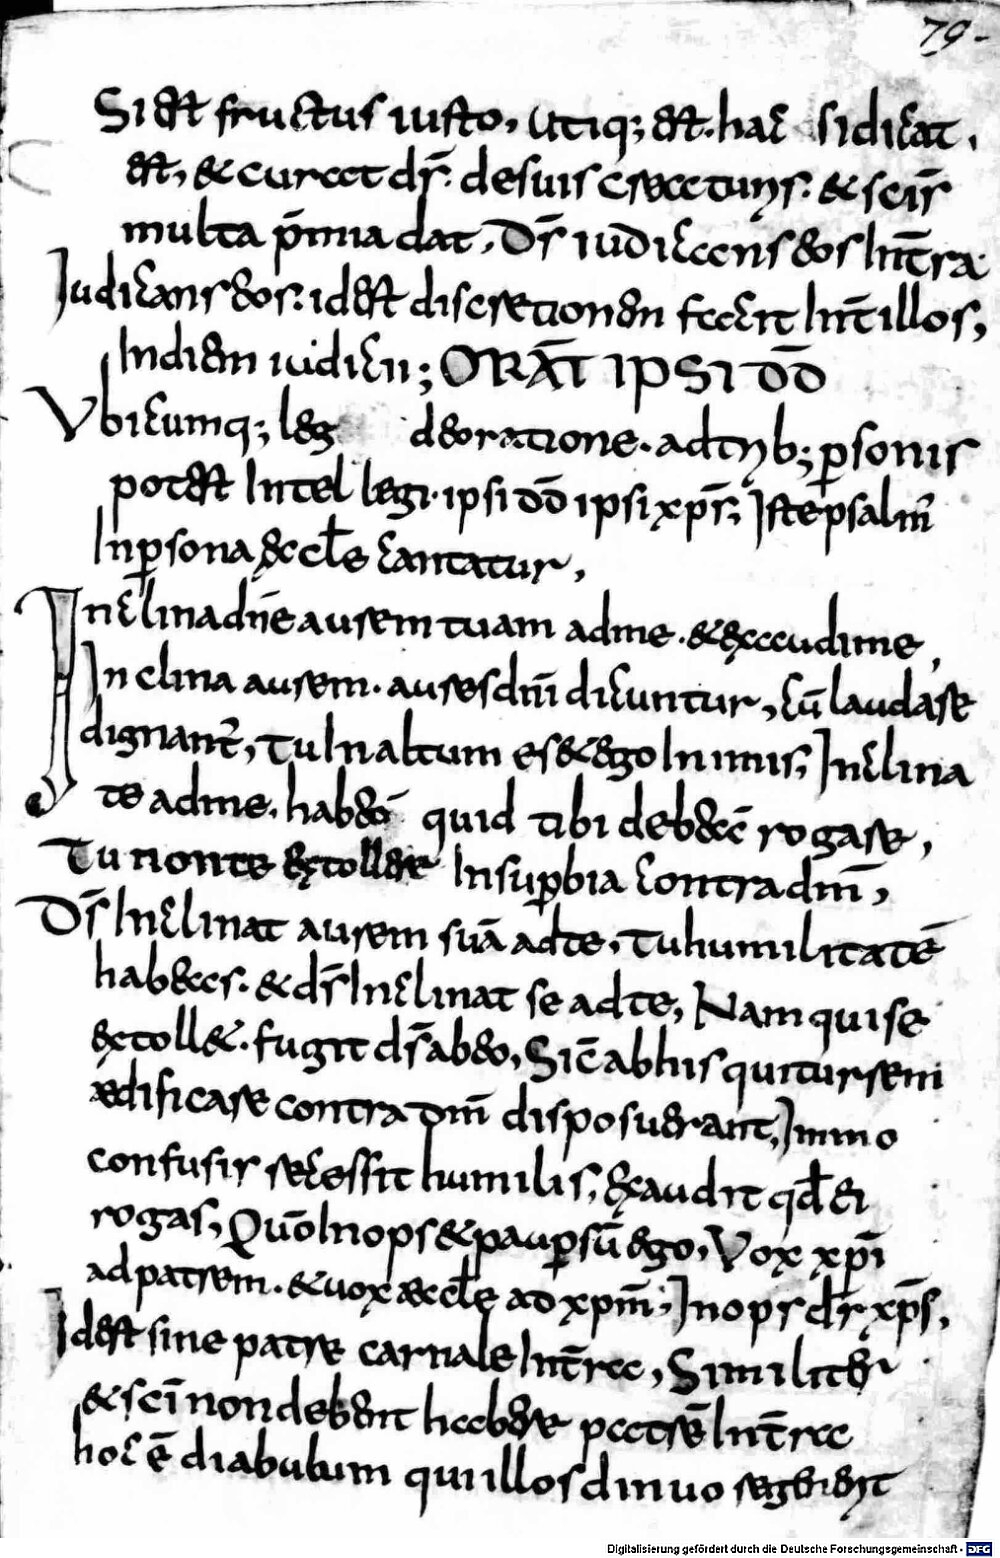 79
Si est fructus iusto, utiq; est. hac si dicat,
est, & curat ds̄. de suis creaturis. & scis̄
multa p̄mia dat, Ds̄ iudicans eos In t̄ra
Iudicans eos. id est discretionem fecit Int̄ illos,
In diem iudicii; ORAT̄ IPSI DD̄
Vbicumq; leg de oratione. ad tribus; psonis
potest Intellegi. ipsi dd̄ ipsi xp̄s; Iste psalm̄
In psona eccle cantatur,
Inclina dn̄e aurem tuam ad me. & exaudi me,
Inclina aurem. aures dn̄i dicuntur, cū laudare
dignant̄, Tu In altum es & ego In imis, Inclina
te ad me. quid tibi debeat rogare,
Tu non te extollere In supbia contra dm̄,
Ds̄ Inclinat aurem suā ad te, Tu humilitatē
habeas. & ds̄ Inclinat se ad te, Nam qui se
extoll&. fugit ds̄ ab eo, Sic̄ ab his qui turrem
ædificare contra dm̄ disposuerant, Immo
confusis recessit humilis, Exaudit qd̄ ei
rogas, Quō Inops & paup sū ego, Vox xp̄i
ad patrem. & vox æccle ad xpm̄; Inops ds̄ xp̄s,
Idest sine patre carnale In t̄ra, Similiter
& sc̄i non debent habere patrē In t̄ra
hoc ē diabulum qui illos dinuo
Digitalisierung gefördert durch die Deutsche Forschungsgemeinschaft - DFG